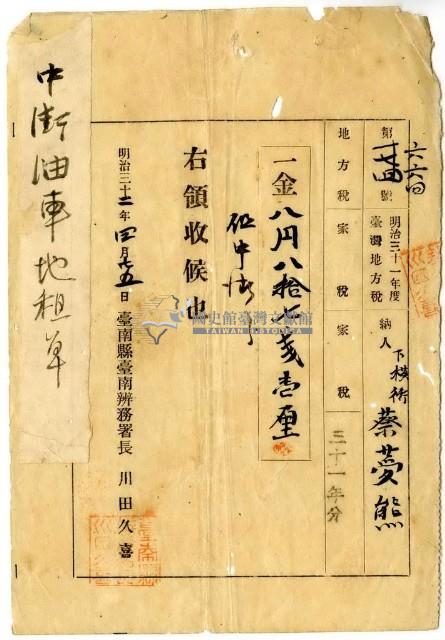 第 號
六六四
明治三十一年度
臺灣地方税
納人
下横街
蔡夢熊
地方税 家税 家税
三十一年分
一金八円八拾 戔壱厘
但中街
右領收候也
明治三十二年四月 五日 臺南縣臺南辨務署長 川田久喜
中街油車地租單
國史館臺灣文獻館
TAIWAN HISTORICA